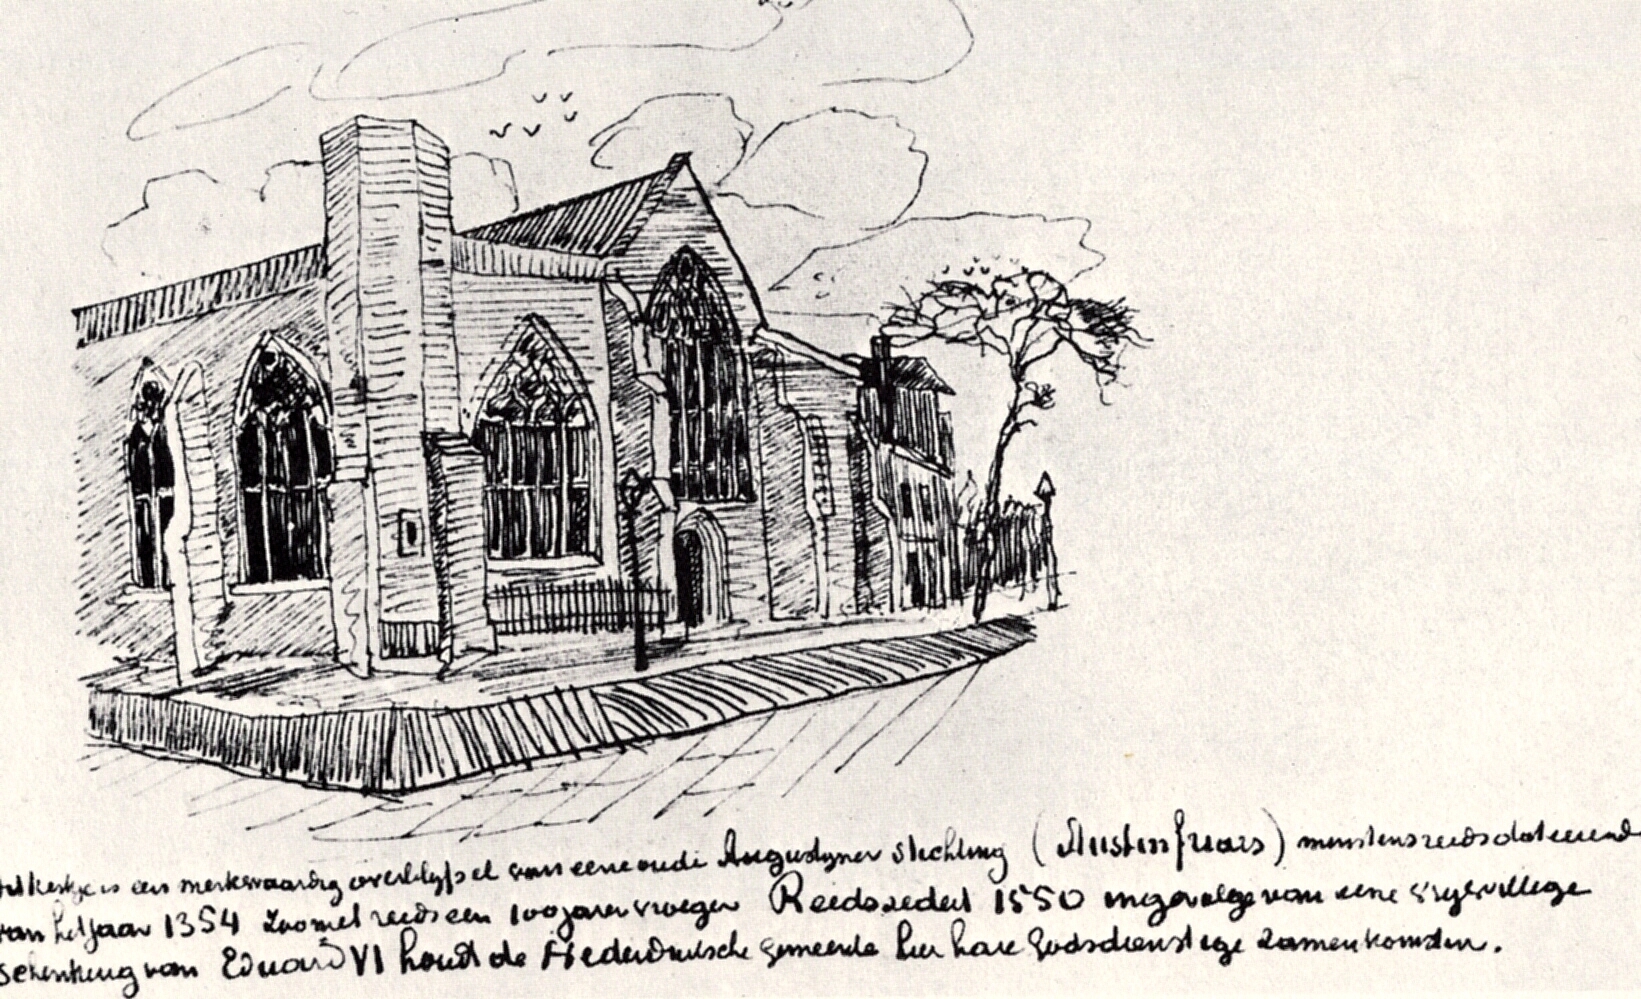 kerkje is een merkwaardig overblijfsel van eene oude Augustijner Stichting (Austin friars) minstens reeds dateerend
van het jaar 1354 zoo niet reeds een 100 jaar vroeger Reeds sedert 1550 ingevolge van eene vrijwillige
schenking van Eduard VI houdt de Nederduitsche gemeente hier hare Godsdienstige zamenkomsten.